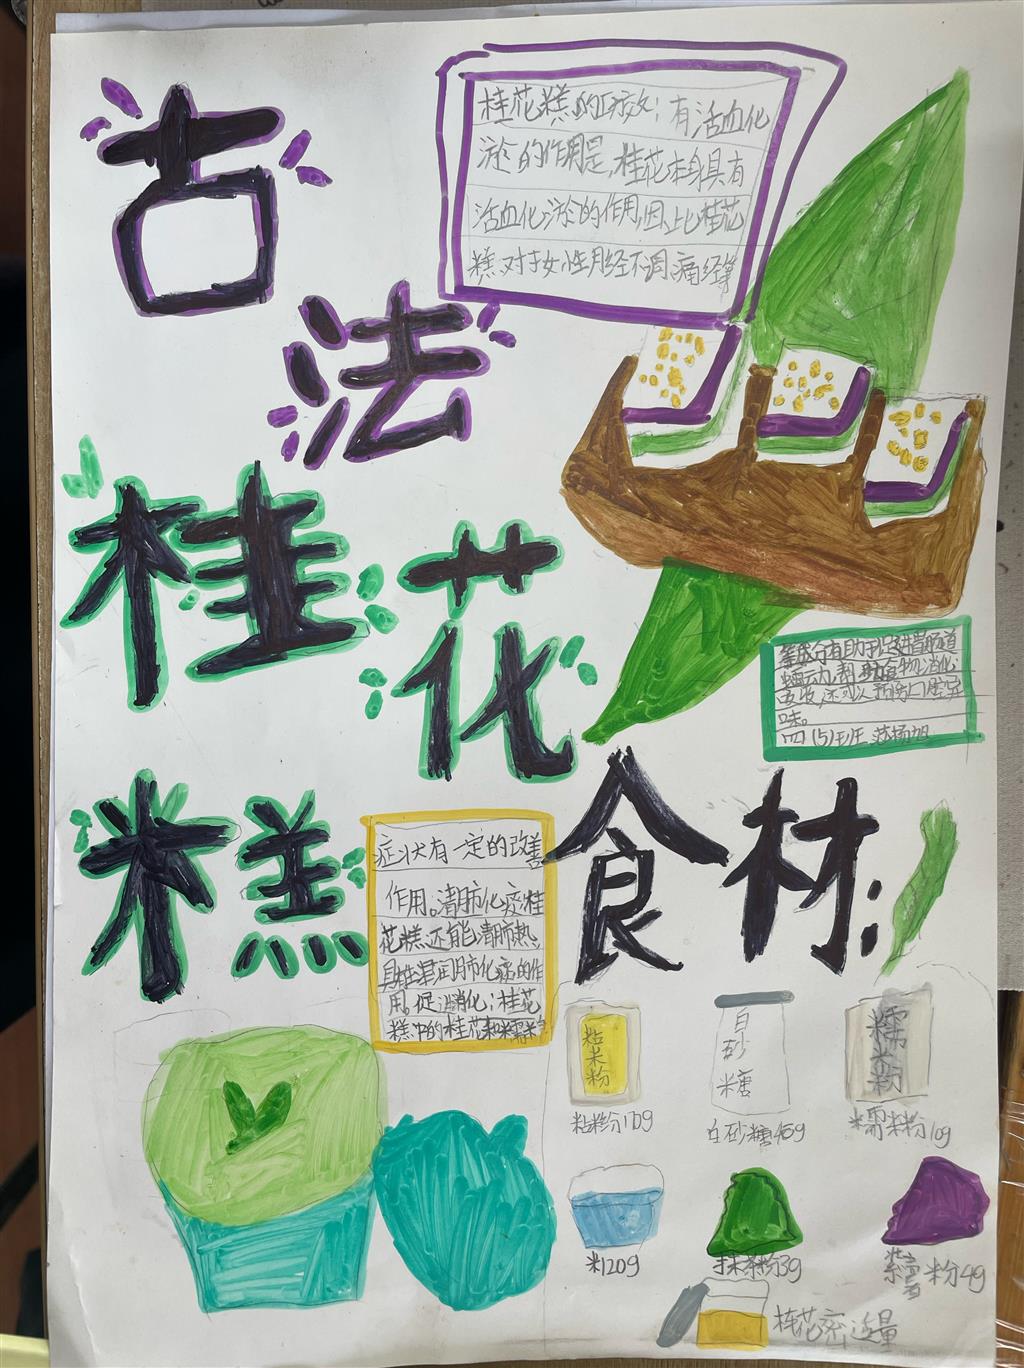 古法
桂花
糕
桂花糕的功效：有活血化
淤的作用是，桂花本身具有
活血化淤的作用，因此桂花
糕对于女性月经不调，痛经等
症状有一定的改善
作用。清肺化痰桂
花糕还能清肺热，
具生津润肺化痰的作
用。促消化：桂花
糕中的桂花和糯米
等成分有助于促进胃肠道
蠕动，帮助食物消化
吸收，还可以预防口腔异
味。
四（5）班
食材：
粘米粉
白砂糖
糯米粉
粘米粉110g
白砂糖45g
糯米粉10g
米120g
抹茶粉3g
紫薯粉4g
桂花密适量